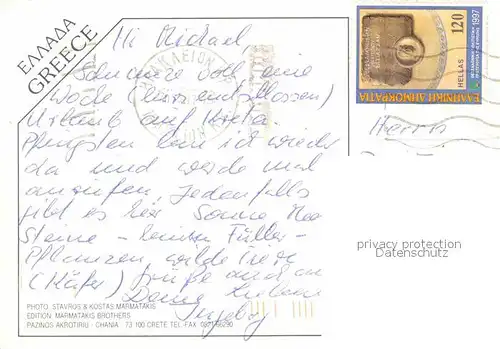 ΕΛΛΑΔΑ
GREECE
Hi Michael,
eine
Woche (kurzentschlossen)
Urlaub auf Kreta
Pfingsten bin ich wieder
da und werde mal
anrufen. Jedenfalls
gibt es hier Sonne Mee
Steine -
Pflanzen, wilde Tiere
(Käfer) Grüße auch an
Deine
Ingeborg
PHOTO: STAVROS & KOSTAS MARMATAKIS
EDITION MARMATAKIS BROTHERS
PAZINOS AKROTIRIU - CHANIA 73 100 CRETE TEL-FAX 0821/66290
120
1997
HELLAS
ΕΛΛΗΝΙΚΗ ΔΗΜΟΚΡΑΤΙΑ
Herrn
privacy protection
Datenschutz